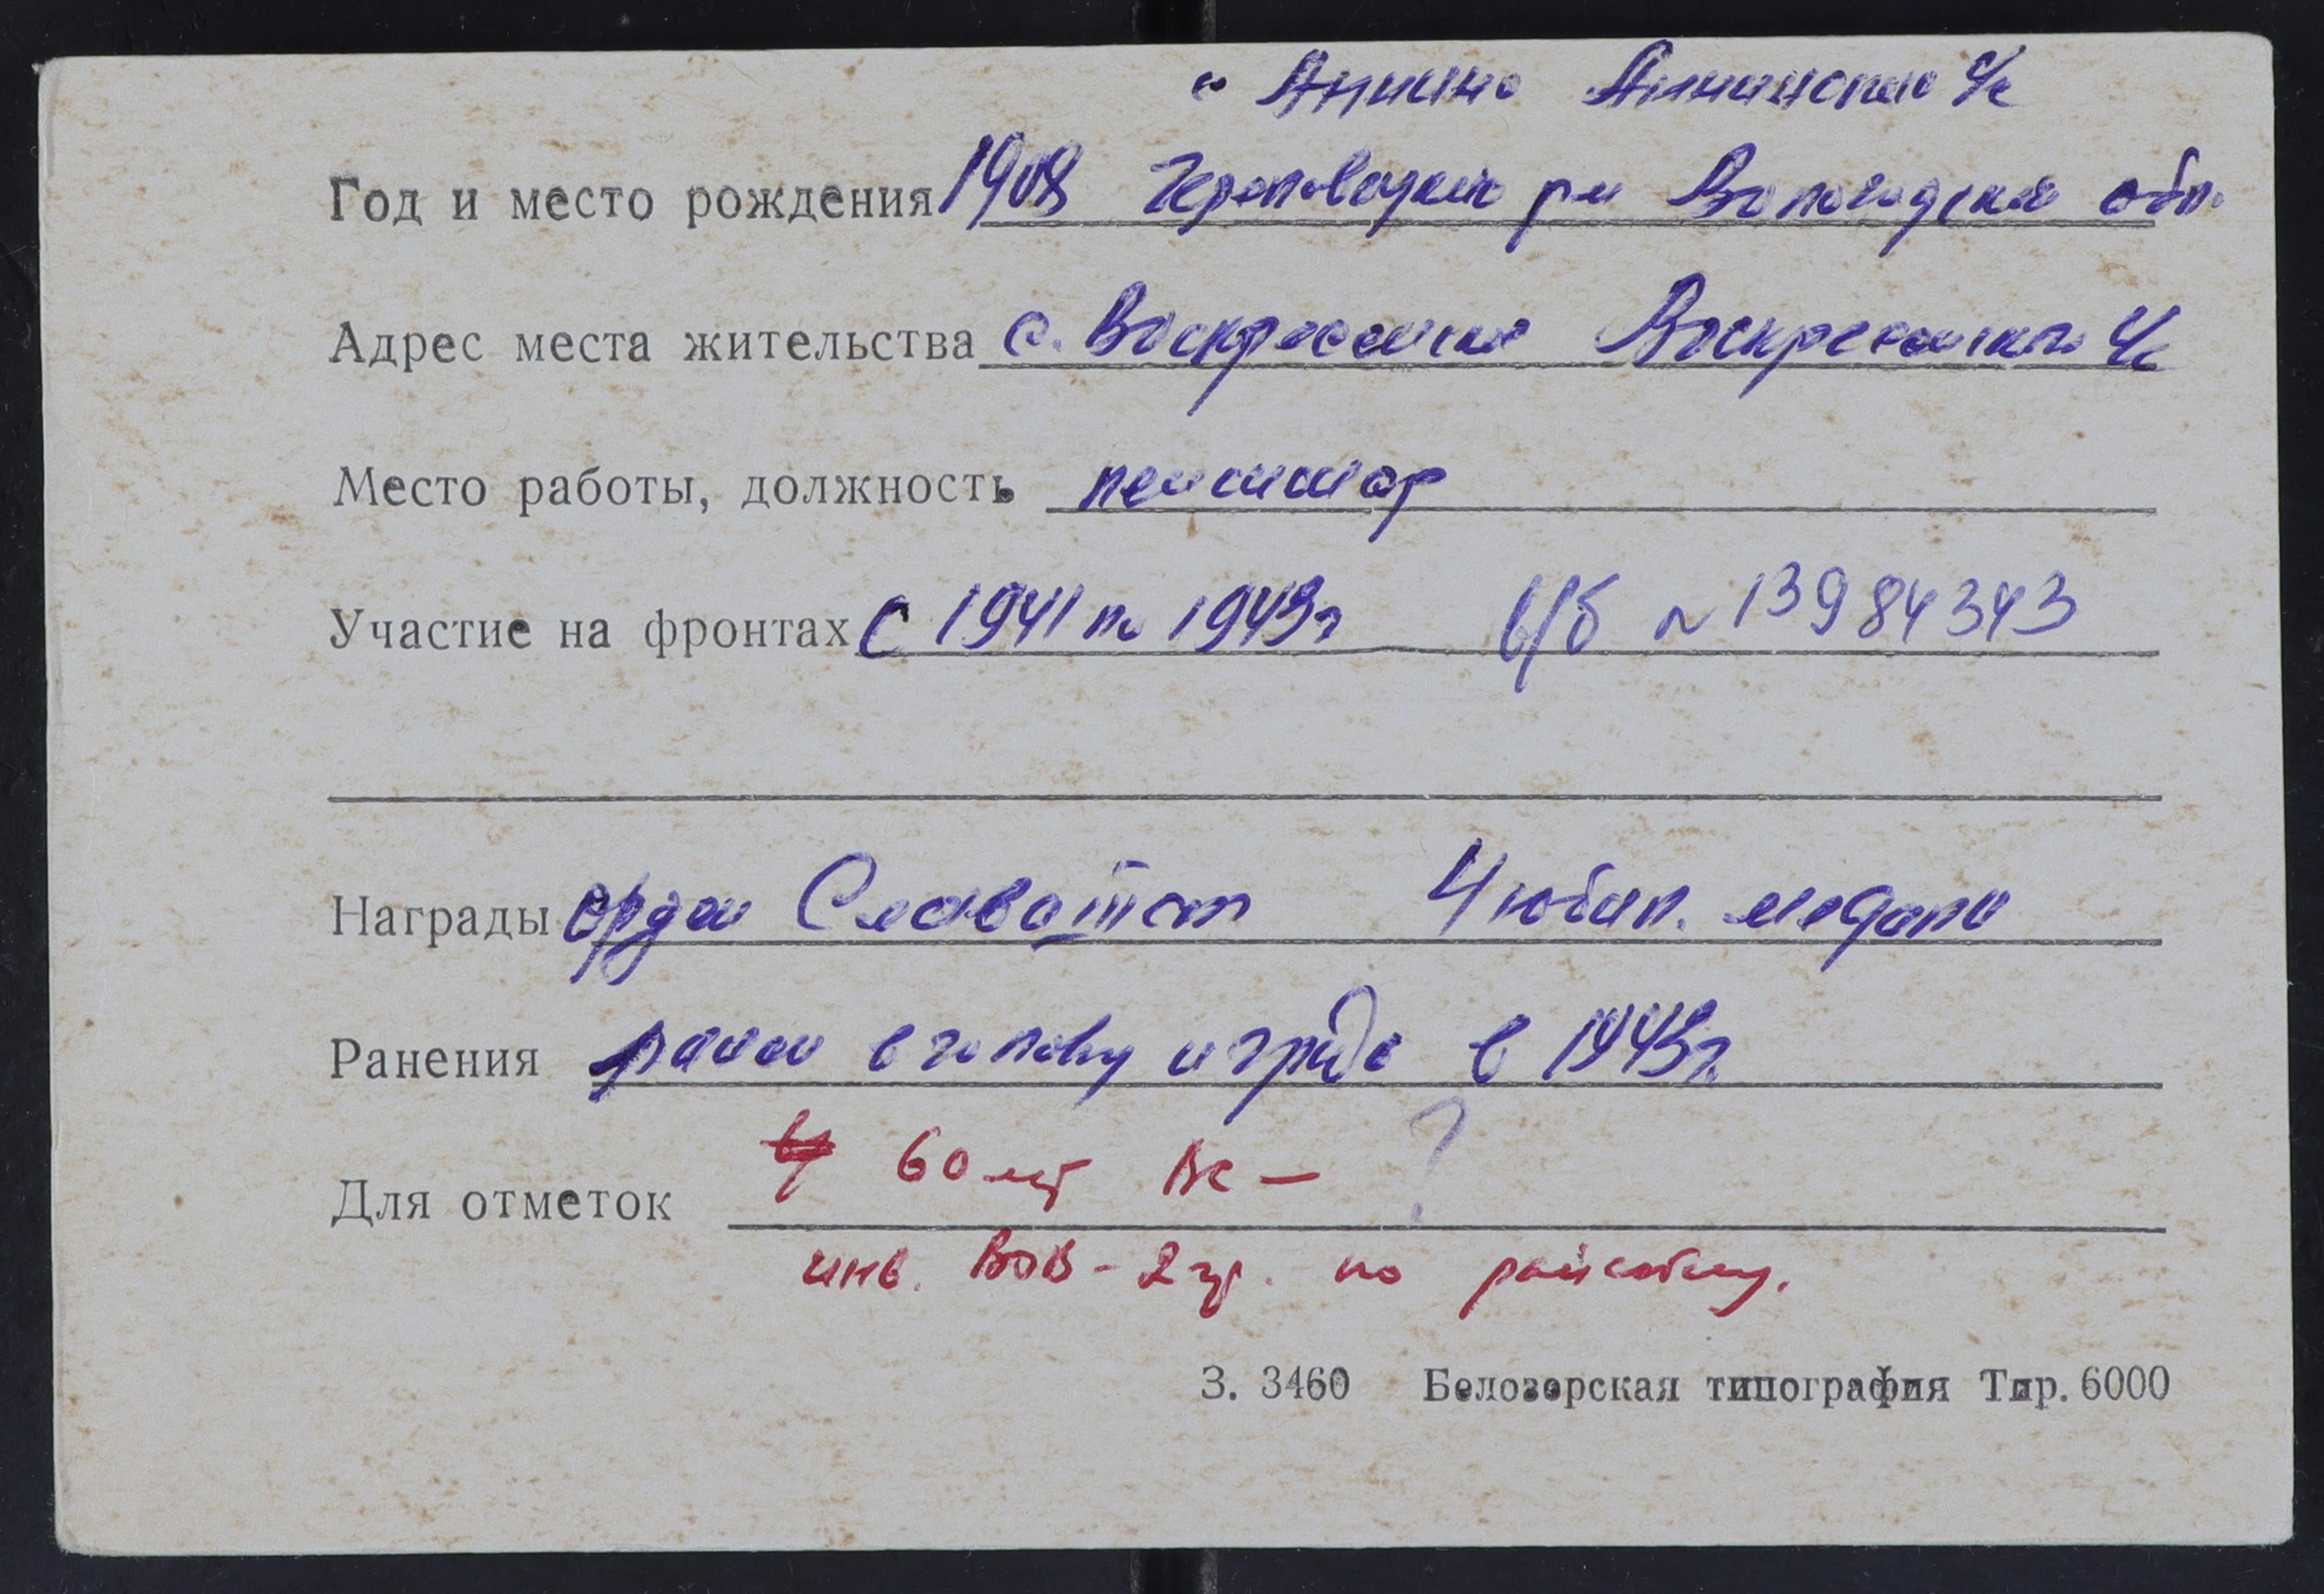 с Аннино Аннинского с/с
Год и место рождения 1908 Череповецкого р-н Вологодская обл.
Адрес места жительства с. Воскресенское Воскресенского с/с
Место работы, должность пенсионер
Участие на фронтах с 1941 по 1943г в/б №13984343
Награды орден Слава III ст 4 юбил. медали
Ранения ранен в голову и грудь в 1943г.
Для отметок 60 лет ВС - ?
инв. ВОВ - 2 гр. по райсобесу.
З. 3460 Белозерская типография Тир. 6000